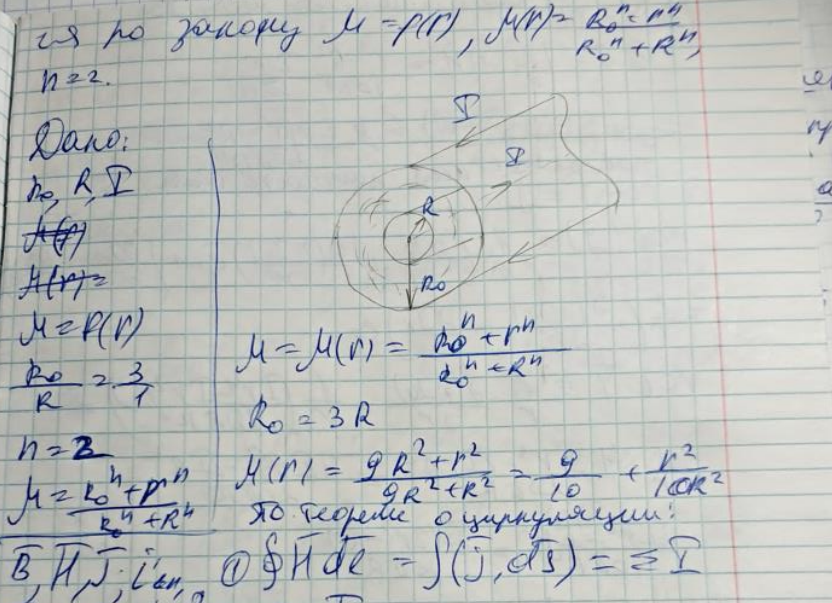 ся по закону M = f(r), M(r) = (R₀ⁿ + rⁿ)/(R₀ⁿ + Rⁿ),
n = 2.
Дано:
R₀, R, I
M = f(r)
R₀/R = 3/1
n = 2
M = (R₀ⁿ + rⁿ)/(R₀ⁿ + Rⁿ)
B, H, J, i'вн,
I
I
R
R₀
M = M(r) = (R₀ⁿ + rⁿ)/(R₀ⁿ + Rⁿ)
R₀ = 3R
M(r) = (9R² + r²)/(9R² + R²) = 9/10 + r²/10R²
По теореме о циркуляции:
① ∮H̄dl̄ = ∫(j̄, ds̄) = ΣI